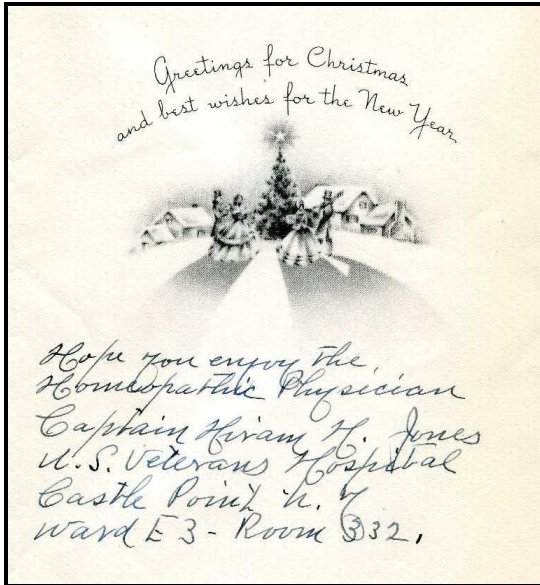 Greetings for Christmas
and best wishes for the New Year
Hope you enjoy the
Homeopathic Physician
Captain Hiram H. Jones
U.S. Veterans Hospital
Castle Point N. Y
Ward E 3 - Room 332.